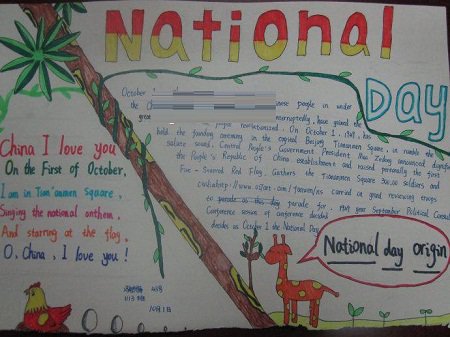 National
Day
October
the Ch nese people in under
great interruptedly, have gained the
people revolutionized. On October 1, 1949, has
hold the founding ceremony in the capital Beijing Tian'anmen Square, in rumble the
salute sound, Central People's Government President Mao Zedong announced dignified
the People's Republic of China establishment and raised personally the first
Five-Starred Red Flag. Gathers the Tiananmen Square 300,000 soldiers and
civilians carried at grand reviewing troops
to parade as this day parade for. That year September Political Consul
Conference session of conference decided
decides as October 1 the National Day
China I love you
On the First of October,
I am in Tian'anmen Square,
Singing the national anthem,
And starring at the flag,
O, China, I love you!
National day origin
10月1日